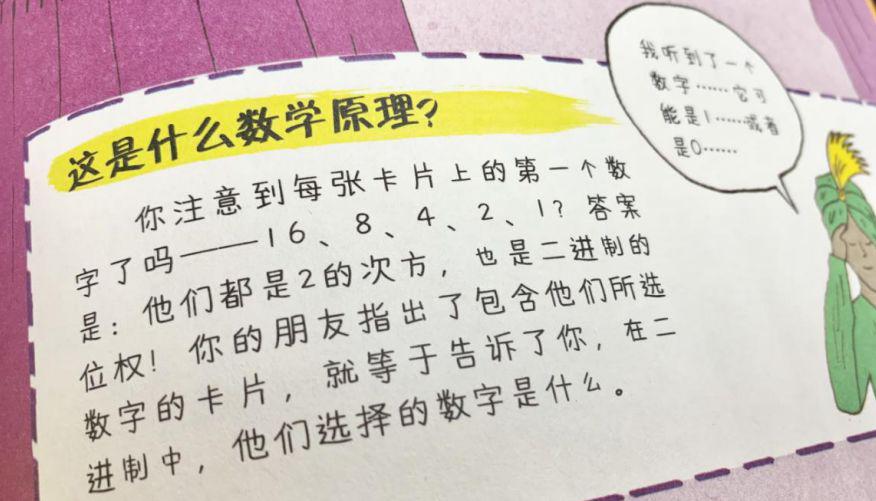 我听到了一个
数字……它可
能是1……或者
是0……
这是什么数学原理?
你注意到每张卡片上的第一个数
字了吗——16、8、4、2、1?答案
是:他们都是2的次方,也是二进制的
位权!你的朋友指出了包含他们所选
数字的卡片,就等于告诉了你,在二
进制中,他们选择的数字是什么。